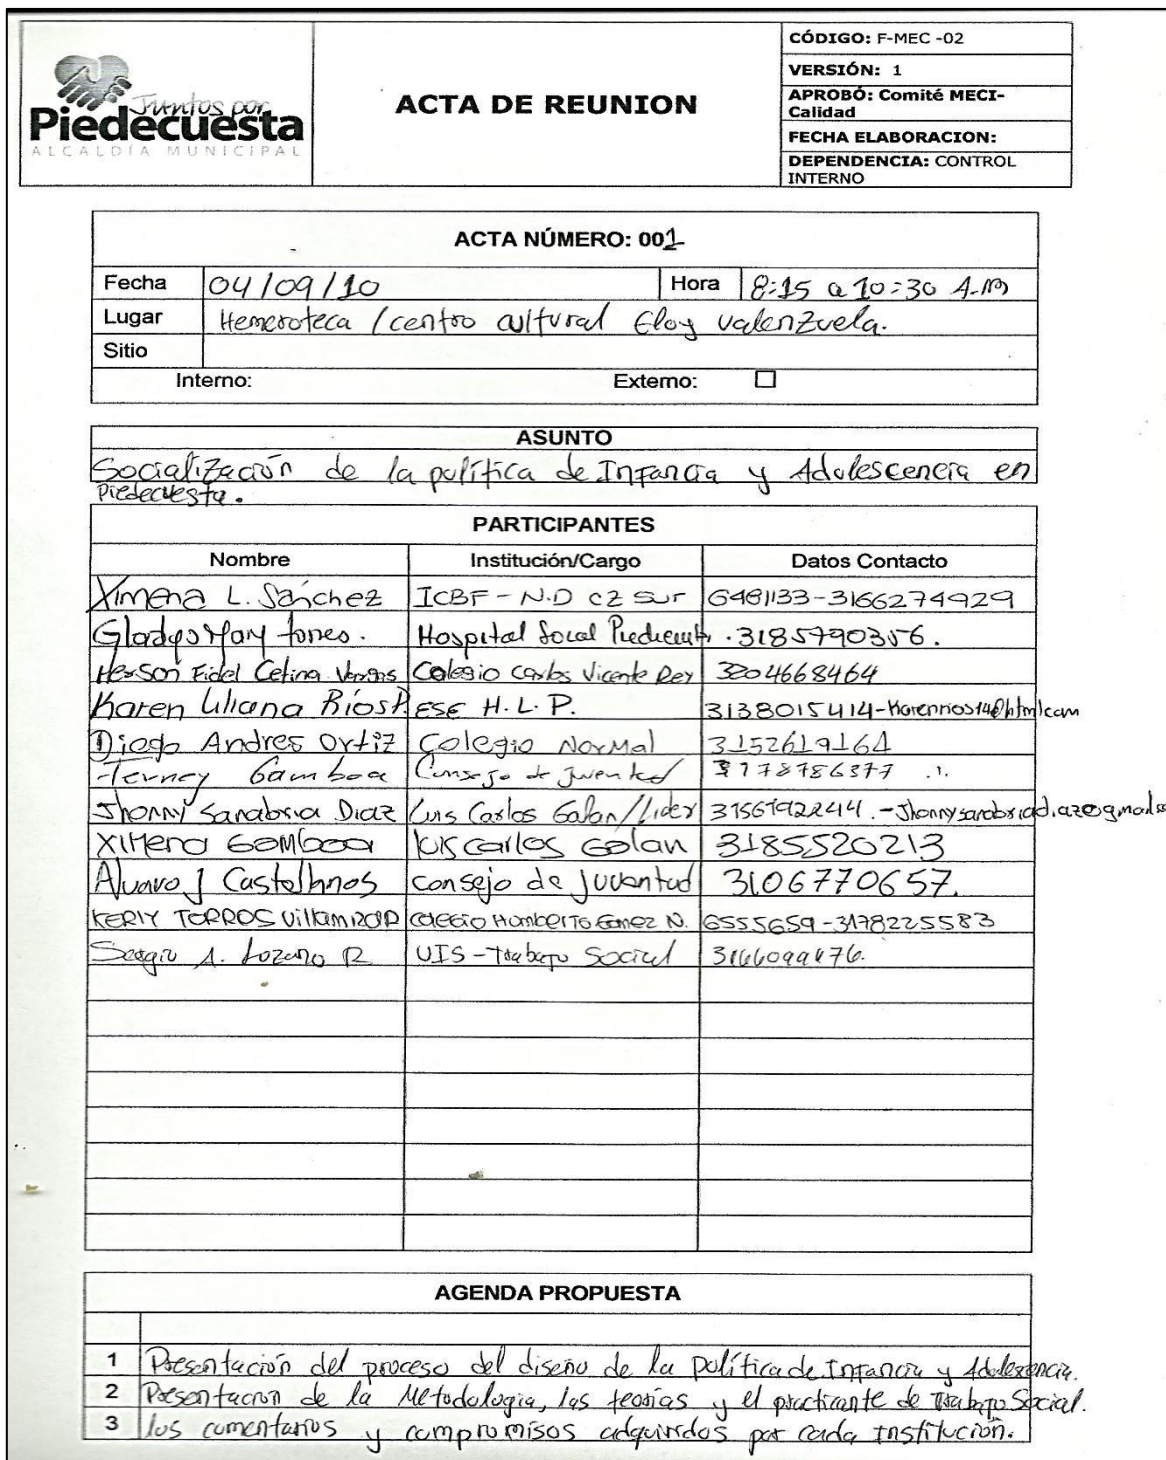 Juntos por
Piedecuesta
ALCALDÍA MUNICIPAL
ACTA DE REUNION
CÓDIGO: F-MEC -02
VERSIÓN: 1
APROBÓ: Comité MECI-
Calidad
FECHA ELABORACION:
DEPENDENCIA: CONTROL
INTERNO
ACTA NÚMERO: 001
Fecha 04/09/10 Hora 8:15 a 10:30 A.M
Lugar Hemeroteca / centro cultural Eloy valenzuela.
Sitio
Interno: Externo:
ASUNTO
Socialización de la política de Infancia y Adolescencia en
Piedecuesta.
PARTICIPANTES
Nombre Institución/Cargo Datos Contacto
Ximena L. Sánchez ICBF - N.D CZ Sur 6481133-3166274929
Gladys Mary Hospital Local 3185790356.
Fidel Cetina Vargas Colegio Carlos Vicente Rey 3204668464
Karen Liliana Ríos P. ESE H. L. P. 3138015414-
Diego Andres Ortiz Colegio Normal 3152619164
Gamboa Consejo de Juventud 3178786377
Jhonny Sanabria Diaz Luis Carlos Galan/Lider
Ximena Gamboa luis carlos Galan 3185520213
Alvaro J Castellanos consejo de Juventud 3106770657.
KERLY TORRES Villamizar Colegio Humberto Gomez N. 6555659-3178225583
Sergio A. Lozano R UIS - Trabajo Social
AGENDA PROPUESTA
1 Presentación del proceso del diseño de la política de Infancia y Adolescencia.
2 Presentacion de la Metodologia, las teorías y el practicante de Trabajo Social.
3 los comentarios y compromisos adquiridos por cada Institución.